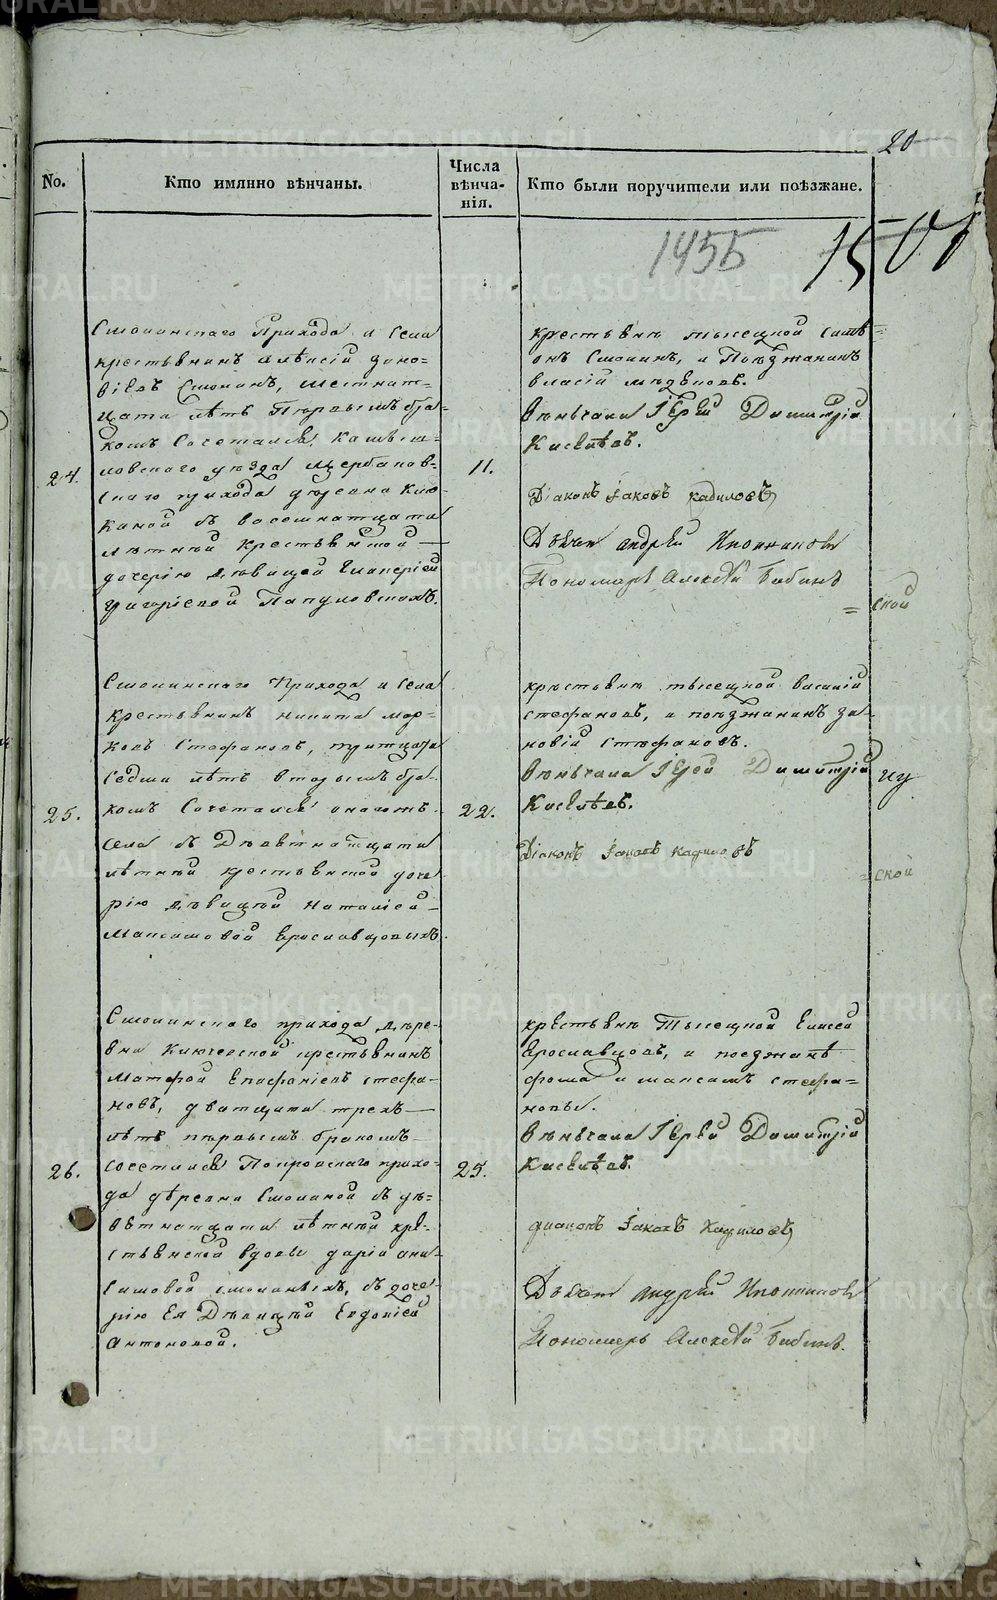 20
No.
Кто имянно вѣнчаны.
Числа вѣнча-нія.
Кто были поручители или поѣзжане.
1455
1501
24.
Смолинскаго Прихода и Села
крестьянинъ Алѣксій
Смолинъ, шестнат-
цати лѣтъ Первымъ бра-
комъ Сочетался, Камыш-
ловскаго уѣзда Щербаков-
скаго прихода
съ восемнатцати
лѣтнѣй крестьянской
дочерію дѣвицей Гликеріей
Григорісвой
11.
крестьянѣ тысецкой
Смолинъ, и Поѣзжанинъ
власій
Вѣнчали Іерей Димитрій
Киселѣвъ.
Діаконъ Іаковъ Кадиловъ
Дьячекъ андрей Иконниковъ
Пономарь Алексѣй Бабинъ
ской
25.
Смолинскаго Прихода и Села
крестьянинъ никита Мар-
ковъ Стефановъ, тритцати
седми лѣтъ вторымъ бра-
комъ Сочетался онагожъ
села съ Девятнатцати
лѣтней крестьянской доче
рію дѣвицей наталіей
Максимовой Ерославцовыхъ.
22.
крестьянѣ тысецкой василій
стефановъ, и поѣзжанинъ зи-
новій стефановъ.
Вѣнчали Іерей Димитрій
Киселѣвъ.
Діаконъ Іаковъ Кадиловъ
ской
26.
Смолинскаго прихода дере-
вни Ключевской крестьянинъ
Матфей Епифаніевъ стефа-
новъ, дватцати трехъ
лѣтъ первымъ бракомъ
сочетался Покровскаго прихо-
да деревни Смолиной съ де-
вятнатцати лѣтней кре-
стьянской вдовы даріи они-
симовой смолиныхъ, съ доче-
рію Ея Дѣвицей Евдокіей
Антоновой.
25.
крестьянѣ Тысецкой Елисей
Ерославцовъ, и поезжанѣ
фома и максимъ стефа-
новы.
Вѣнчали Іерей Димитрій
Киселѣвъ.
диаконъ Іаковъ Кадиловъ
Дьячекъ андрей Иконниковъ
Пономарь Алексѣй Бабинъ.
METRIKI.GASO-URAL.RU